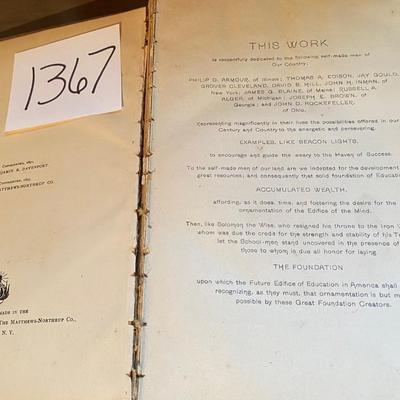 1367
COPYRIGHTED, 1891,
DAVENPORT
COPYRIGHTED, 1891,
MATTHEWS-NORTHRUP CO.
MADE IN THE
THE MATTHEWS-NORTHRUP CO.,
N. Y.
THIS WORK
is respectfully dedicated to the following self-made men of
Our Country:
PHILIP D. ARMOUR, of Illinois; THOMAS A. EDISON, JAY GOULD,
GROVER CLEVELAND, DAVID B. HILL, JOHN H. INMAN, of
New York; JAMES G. BLAINE, of Maine; RUSSELL A.
ALGER, of Michigan; JOSEPH E. BROWN, of
Georgia; and JOHN D. ROCKEFELLER,
of Ohio,
Representing magnificently in their lives the possibilities offered in our
Century and Country to the energetic and persevering.
EXAMPLES, LIKE BEACON LIGHTS,
to encourage and guide the weary to the Haven of Success.
To the self-made men of our land are we indebted for the development
great resources; and consequently that solid foundation of Education
ACCUMULATED WEALTH,
affording, as it does, time, and fostering the desire for the
ornamentation of the Edifice of the Mind.
Then, like Solomon the Wise, who resigned his throne to the Iron
whom was due the credit for the strength and stability of his
let the School-men stand uncovered in the presence of
those to whom is due all honor for laying
THE FOUNDATION
upon which the Future Edifice of Education in America shall
recognizing, as they must, that ornamentation is but
possible by these Great Foundation Creators.